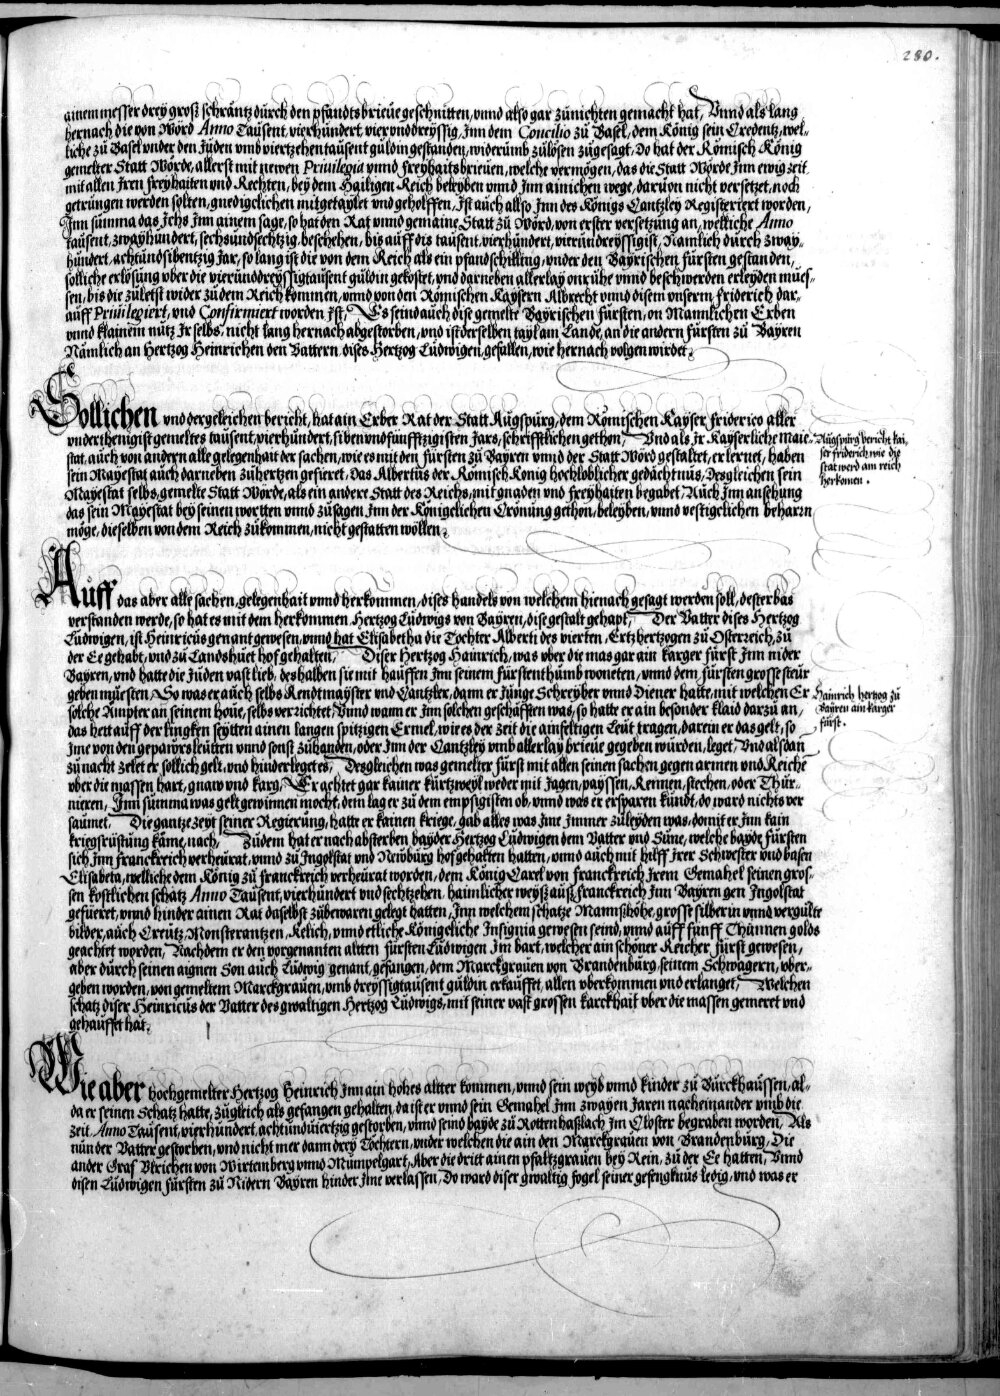 280.
ainem messer drey groß schräntz durch den pfandtsbrieue geschnitten, vnnd also gar zunichten gemacht hat, Vnnd als lang
hernach die von Wörd Anno Tausent, vierhundert, vier vnd dreyssig, Jnn dem Concilio zu Basel, dem König sein Credentz, wel-
liche zu Basel vnder den Juden vmb viertzehen tausent guldin gestanden, widerumb zulösen zugesagt, Do hat der Römisch König
gemelter Statt Wörde, allerst mit newen Priuilegia vnnd freyhaitsbrieuen, welche vermögen, das die Statt Wörde Jnn ewig zeit
mit allen Jren freyhaiten vnd Rechten, bey dem Hailigen Reich beleyben vnnd Jnn ainichen wege, daruon nicht versetzt, noch
getrungen werden solten, gnedigclichen mitgetaylet vnd geholffen, Jst auch allso Jnn des Königs Cantzley Registeriert worden,
Jnn summa das Jchs Jnn ainem sage, so hat den Rat vnnd gemaine Statt zu Wörd, von erster versetzung an, welliche Anno
tausent, zwayhundert, sechsundsechtzig, beschehen, bis auff dis tausent, vierhundert, vierundreyssigist, Namlich durch zway-
hundert, achtundsibentzig Jar, so lang ist die von dem Reich als ein pfandschilling, vnder den Bayrischen fürsten gestanden,
solliche erlösung vber die vierunddreyssigtausent guldin gekostet, vnd darneben allerlay onrühe vnnd beschwerden erleyden mües-
sen, bis die zuletst wider zu dem Reich kommen, vnnd von den Römischen Kaysern Albrecht vnnd disem vnserm friderich dar-
auff Priuilegiert, vnd Confirmiert worden ist, Es seind auch dise gemelte Bayrischen fürsten, on Mannlichen Erben
vnnd klainem nutz Jr selbs, nicht lang hernach abgestorben, vnd ist derselben tayl am Lande, an die andern fürsten zu Bayren
Nämlich an Hertzog Heinrichen den Vattern, dises Hertzog Ludwigen, gefallen, wie hernach volgen wirdet.
Sollichen vnd dergeleichen bericht, hat ain Erber Rat der Statt Augspurg, dem Römischen Kayser friderico aller
vnderthenigist gemeltes tausent, vierhundert, siben vnd funfftzigisten Jars, schrifftlichen gethon, Vnd als Jr Kayserliche Maie-
stat, auch von andern alle gelegenhait der sachen, wie es mit den fürsten zu Bayren vnnd der Statt Wörd gestaltet, erlernet, haben
sein Mayestat auch darneben zu hertzen gefieret, Das Albertus der Römisch König hochloblicher gedächtnus, Desgleichen sein
Mayestat selbs, gemelte Statt Wörde, als ein andere Statt des Reichs, mit gnaden vnd freyhaiten begabet, Auch Jnn ansehung
das sein Mayestat bey seinen wortten vnnd zusagen Jnn der Königclichen Crönung gethon, beleyben, vnnd vestigclichen beharrn
möge, dieselben von dem Reich zukommen, nicht gestatten wöllen.
Augspurg bericht kai-
ser friderich wie die
stat werd am reich
herkomen.
Auff das aber alle sachen, gelegenhait vnnd herkommen, dises handels von welchem hienach gesagt werden soll, dester bas
verstanden werde, so hat es mit dem herkommen Hertzog Ludwigs von Bayren, dise gestalt gehapt, Der Vatter dises Hertzog
Ludwigen, ist Heinricus genant gewesen, vnnd hat Elisabetha die Tochter Alberti des vierten, Ertzhertzogen zu Osterreich, zu
der Ee gehabt, vnd zu Landshuet hof gehalten, Diser Hertzog Hainrich, was vber die mas gar ain karger fürst Jnn nider
Bayren, vnd hatte die Juden vast lieb, deshalben sie mit hauffen Jnn seinem fürstenthumb woneten, vnnd dem fürsten grosse steür
geben müesten, So was er auch selbs Rendtmayster vnd Cantzler, dann er Junge Schreyber vnnd Diener hatte, mit welchen Er
solche Ampter an seinem houe, selbs verrichtet, Vnnd wann er Jnn solchen geschäfften was, so hatte er ain besonder klaid darzu an,
das hett auff der lingken seytten ainen langen spitzigen Ermel, wie es der zeit die ainfeltigen Leüt tragen, darein er das gelt, so
Jme von den gepawrsleütten vnnd sonst zuhanden, oder Jnn der Cantzley vmb allerlay brieue gegeben wurden, leget, Vnd alsdan
zu nacht zelet er sollich gelt, vnd hinderleget es, Desgleichen was gemelter fürst mit allen seinen sachen gegen armen vnd Reiche
vber die massen hart, gnaw vnd karg, Er achtet gar kainer kurtzweyl weder mit Jagen, payssen, Rennen, stechen, oder Thur-
nieren, Jnn summa was gelt gewinnen mocht, dem lag er zu dem empsigisten ob, vnnd was er ersparen kundt, do ward nichts ver
saumet. Die gantze zeyt seiner Regierung, hatte er kainen kriege, gab alles was Jme Jmmer zuleyden was, domit er Jnn kain
kriegsrüstung käme, nach, Zudem hat er nach absterben bayder Hertzog Ludwigen dem Vatter vnd Süne, welche bayde fürsten
sich Jnn franckreich verheürat, vnnd zu Jngolstat vnd Newburg hof gehalten hatten, vnnd auch mit hilff Jrer Schwester vnd basen
Elisabeta, welliche dem König zu franckreich verheürat worden, dem König Carel von franckreich Jrem Gemahel seinen gros-
sen kostlichen schatz Anno Tausent, vierhundert vnd sechtzehen, haimlicher weyß auß franckreich Jnn Bayren gen Jngolstat
gefüeret, vnnd hinder ainen Rat daselbst zubewaren gelegt hatten, Jnn welchem schatze Mannßhöhe, grosse silberin vnnd vergülte
bilder, auch Creütz, Monsterantzen, Kelich, vnnd etliche Königcliche Jnsignia gewesen seind, vnnd auff funff Thunnen golds
geachtet worden, Nachdem er den vorgenanten altten fürsten Ludwigen Jm bart, welcher ain schöner Reicher fürst gewesen,
aber durch seinen aignen Son auch Ludwig genant, gefangen, dem Marckgrauen von Brandenburg, seinem Schwagern, vber-
geben worden, von gemeltem Marckgrauen, vmb dreyssigtausent guldin erkaufft, allen vberkommen vnd erlanget, Welchen
schatz diser Heinricus der Vatter des gwaltigen Hertzog Ludwigs, mit seiner vast grossen karckhait vber die massen gemeret vnd
gehauffet hat.
Hainrich hertzog zu
Bayren ain karger
fürst.
Wie aber hochgemelter Hertzog Heinrich Jnn ain hohes altter kommen, vnnd sein weyb vnnd kinder zu Burckhaussen, al-
da er seinen Schatz hatte, zugleich als gefangen gehalten, da ist er vnnd sein Gemahel Jnn zwayen Jaren nacheinander vmb die
zeit, Anno Tausent, vierhundert, achtunduiertzig gestorben, vnnd seind bayde zu Rotten haßlach Jm Closter begraben worden, Als
nun der Vatter gestorben, vnd nicht mer dann drey Töchtern, vnder welchen die ain den Marckgrauen von Brandenburg, Die
ander Graf Vlrichen von Wirtemberg vnnd Mümpelgart, Aber die dritt ainen pfaltzgrauen bey Rein, zu der Ee hatten, Vnnd
disen Ludwigen fürsten zu Nidern Bayren hinder Jme verlassen, Do ward diser gwaltig fogel seiner gefengknus ledig, vnd was er